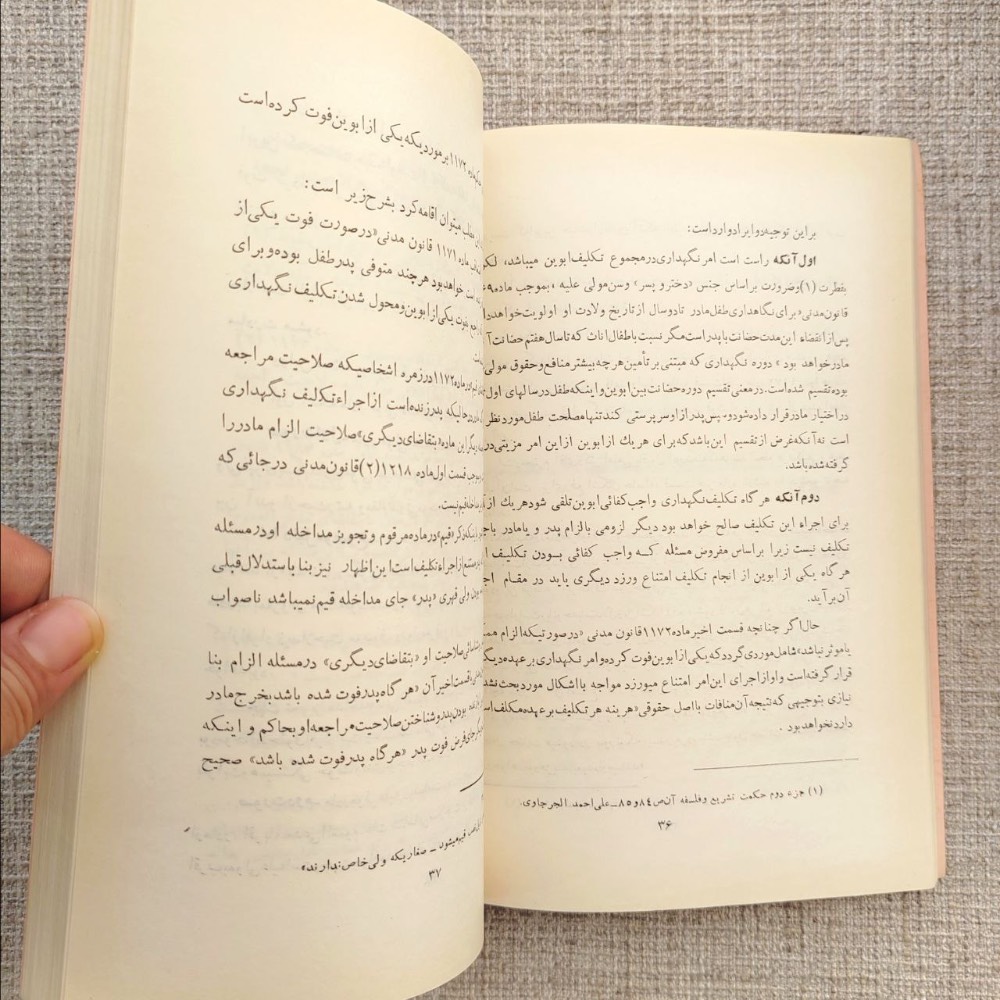 براین توجیه دو ایراد وارد است:
اول آنکه راست است امر نگهداری در مجموع تکلیف ابوین میباشد،
بفطرت (۱) وضرورت براساس جنس «دختر و پسر» وسن مولی علیه ، بموجب ماده
قانون مدنی «برای نگاهداری طفل مادر تا دوسال از تاریخ ولادت او اولویت خواهد
پس از انقضاء این مدت حضانت با پدر است مگر نسبت باطفال اناث که تا سال هفتم حضانت
مادر خواهد بود» دوره نگهداری که مبتنی بر تأمین هر چه بیشتر منافع و حقوق مولی
بوده تقسیم شده است. در معنی تقسیم دوره حضانت بین ابوین و اینکه طفل در سالهای اول
در اختیار مادر قرار داده شود و سپس پدر از او سرپرستی کند تنها مصلحت طفل مورد نظر
است نه آنکه غرض از تقسیم این باشد که برای هر یك از ابوین از این امر مزیتی در
گرفته شده باشد.
دوم آنکه هر گاه تکلیف نگهداری واجب کفائی ابوین تلقی شود هر یك از
برای اجراء این تکلیف صالح خواهد بود دیگر لزومی بالزام پدر و یا مادر
تکلیف نیست زیرا براساس مفروض مسئله که واجب کفائی بودن تکلیف
هر گاه یکی از ابوین از انجام تکلیف امتناع ورزد دیگری باید در مقام
آن بر آید.
حال اگر چنانچه قسمت اخیر ماده ۱۱۷۲ قانون مدنی «در صورتیکه الزام
یا موثر نباشد» شامل موردی گردد که یکی از ابوین فوت کرده و امر نگهداری بر عهده
قرار گرفته است و او از اجرای این امر امتناع میورزد مواجه با اشکال مورد بحث
نیازی بتوجیهی که نتیجه آن منافات با اصل حقوقی «هزینه هر تکلیف بر عهده مکلف
دارد نخواهد بود .
(۱) جزء دوم حکمت تشریع وفلسفه آن ص ۸۴ و ۸۵ ـ علی احمد الجرجاوی.
۳۶
۱۱۷۲ بر موردیکه یکی از ابوین فوت کرده است
مطلب میتوان اقامه کرد بشرح زیر است:
ماده ۱۱۷۱ قانون مدنی «در صورت فوت یکی از
است خواهد بود هر چند متوفی پدر طفل بوده و برای
بفوت یکی از ابوین و محول شدن تکلیف نگهداری
در ماده ۱۱۷۲ در زمره اشخاصیکه صلاحیت مراجعه
در حالیکه پدر زنده است از اجراء تکلیف نگهداری
این ماده «بتقاضای دیگری» صلاحیت الزام مادر را
قسمت اول ماده ۱۲۱۸ (۲) قانون مدنی در جائی که
مداخله قیم نیست.
ذکر «قیم» در ماده مرقوم و تجویز مداخله او در مسئله
ممتنع از اجراء تکلیف است این اظهار نیز بنا باستدلال قبلی
ولی قهری «پدر» جای مداخله قیم نمیباشد ناصواب
صلاحیت او «بتقاضای دیگری» در مسئله الزام بنا
قسمت اخیر آن «هر گاه پدر فوت شده باشد بخرج مادر
بودن پدر و شناختن صلاحیت مراجعه او بحاکم و اینکه
فرض فوت پدر «هر گاه پدر فوت شده باشد» صحیح
قیم میشود ـ صغاریکه ولی خاص ندارند»
۳۷